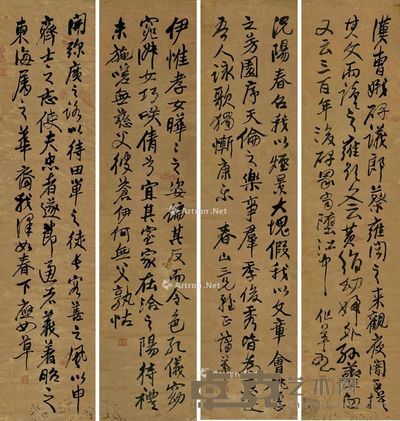 漢曹娥碑議郎蔡雍聞之來觀夜闇手摸
其文而讀之雍題文云黃絹幼婦外孫齏臼
又云三百年後碑冢當墮江中
況陽春召我以煙景大塊假我以文章會桃李
之芳園序天倫之樂事群季俊秀皆為惠連
吾人詠歌獨慚康樂
伊惟孝女曄曄之姿偏其反而令色孔儀窈
窕淑女巧笑倩兮宜其室家在洽之陽待禮
未施嗟無慈父彼蒼伊何無父孰怙
開弥廣之路以待田單之徒長容善之風以申
齊士之志使夫忠者遂節通者義著昭之
東海屬之華裔我澤如春下應如草